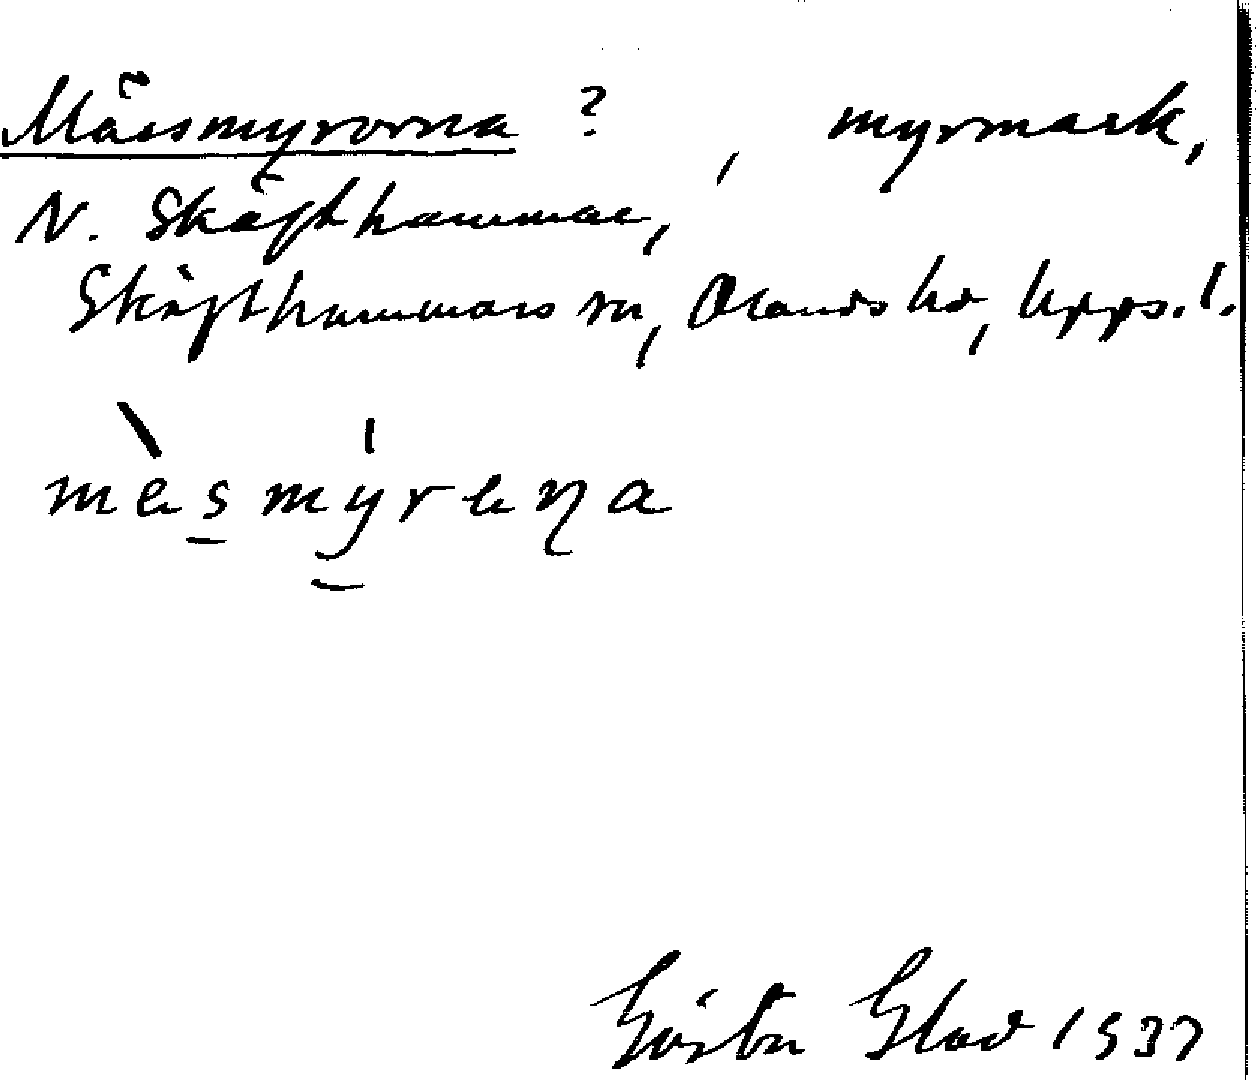 Mäsmyrorna ? , myrmark,
N. Skäfthammar,
Skäfthammars sn, Olands hd, Upps. l.
mèsmýrena
Gösta Glad 1937